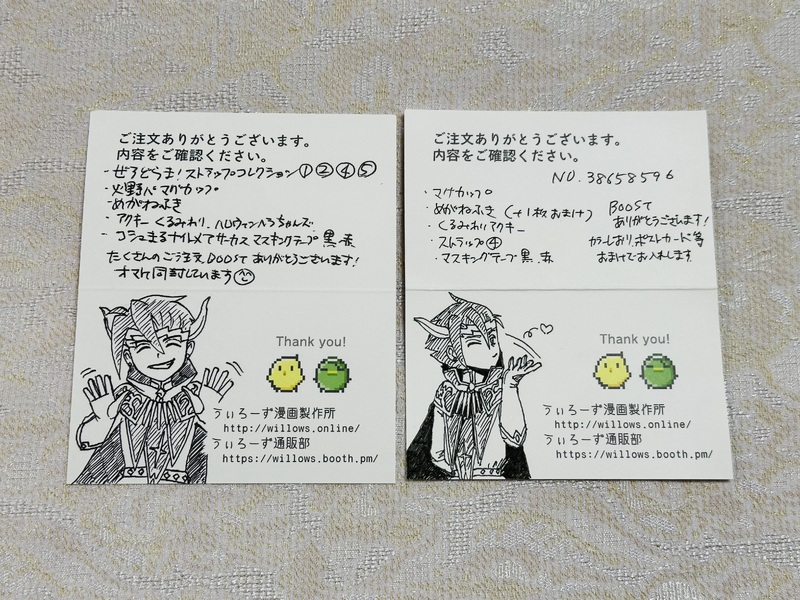 ご注文ありがとうございます。
内容をご確認ください。
・ぜろどらま!ストラップコレクション①②④⑤
・火野べマグカップ
・めがねふき
・アクキー くるみわり、ハロウィンべろちゃんズ
マスキングテープ 黒、赤
たくさんのご注文、BOOSTありがとうございます!
オマケ同封しています
Thank you!
うぃろーず漫画製作所
http://willows.online/
うぃろーず通販部
https://willows.booth.pm/
ご注文ありがとうございます。
内容をご確認ください。
NO.38658596
・マグカップ
・めがねふき(+1枚おまけ)
・くるみわりアクキー
・ストラップ④
・マスキングテープ黒、赤
BOOST
ありがとうございます!
カラーしおり、ポストカード等
おまけでお入れします。
Thank you!
うぃろーず漫画製作所
http://willows.online/
うぃろーず通販部
https://willows.booth.pm/